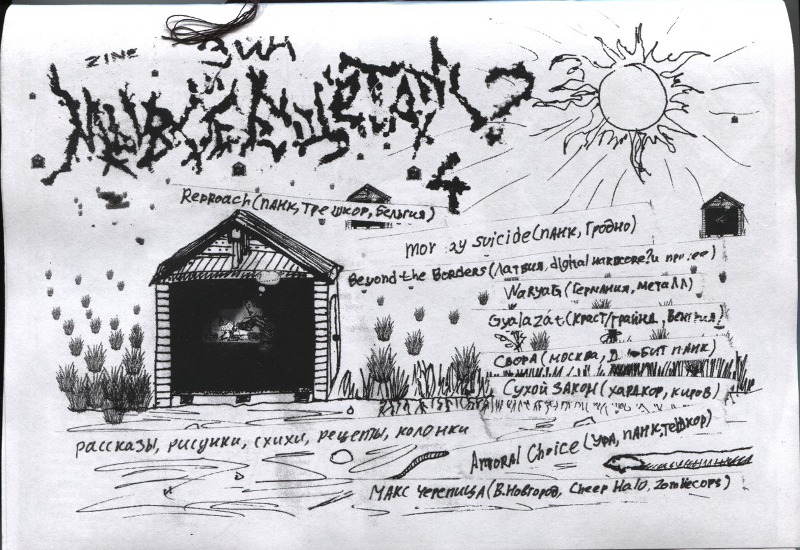 ZINE
ЗИН
4
Reproach (ПАНК, ТРЕШКОР, БЕЛЬГИЯ)
suicide (ПАНК, ГРОДНО)
Beyond the Borders (ЛАТВИЯ, digital HARDCORE? и
WARYAG (ГЕРМАНИЯ, МЕТАЛЛ)
Gyalazát (КРАСТ/ГРАЙНД, ВЕНГРИЯ)
СВОРА (МОСКВА, ПАНК)
СУХОЙ ЗАКОН (ХАРДКОР, КИРОВ)
рассказы, рисунки, схихи, рецепты, колонки
Amoral Choice (УФА, ПАНК, ТРЕШКОР)
МАКС ЧЕРЕПИЦА (В.НОВГОРОД, Cheep Halo, Zombiecops)